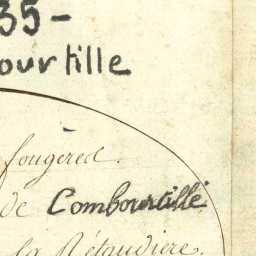 35-
ourtille
fougères.
de Combourtillé
la Rétaudiere.